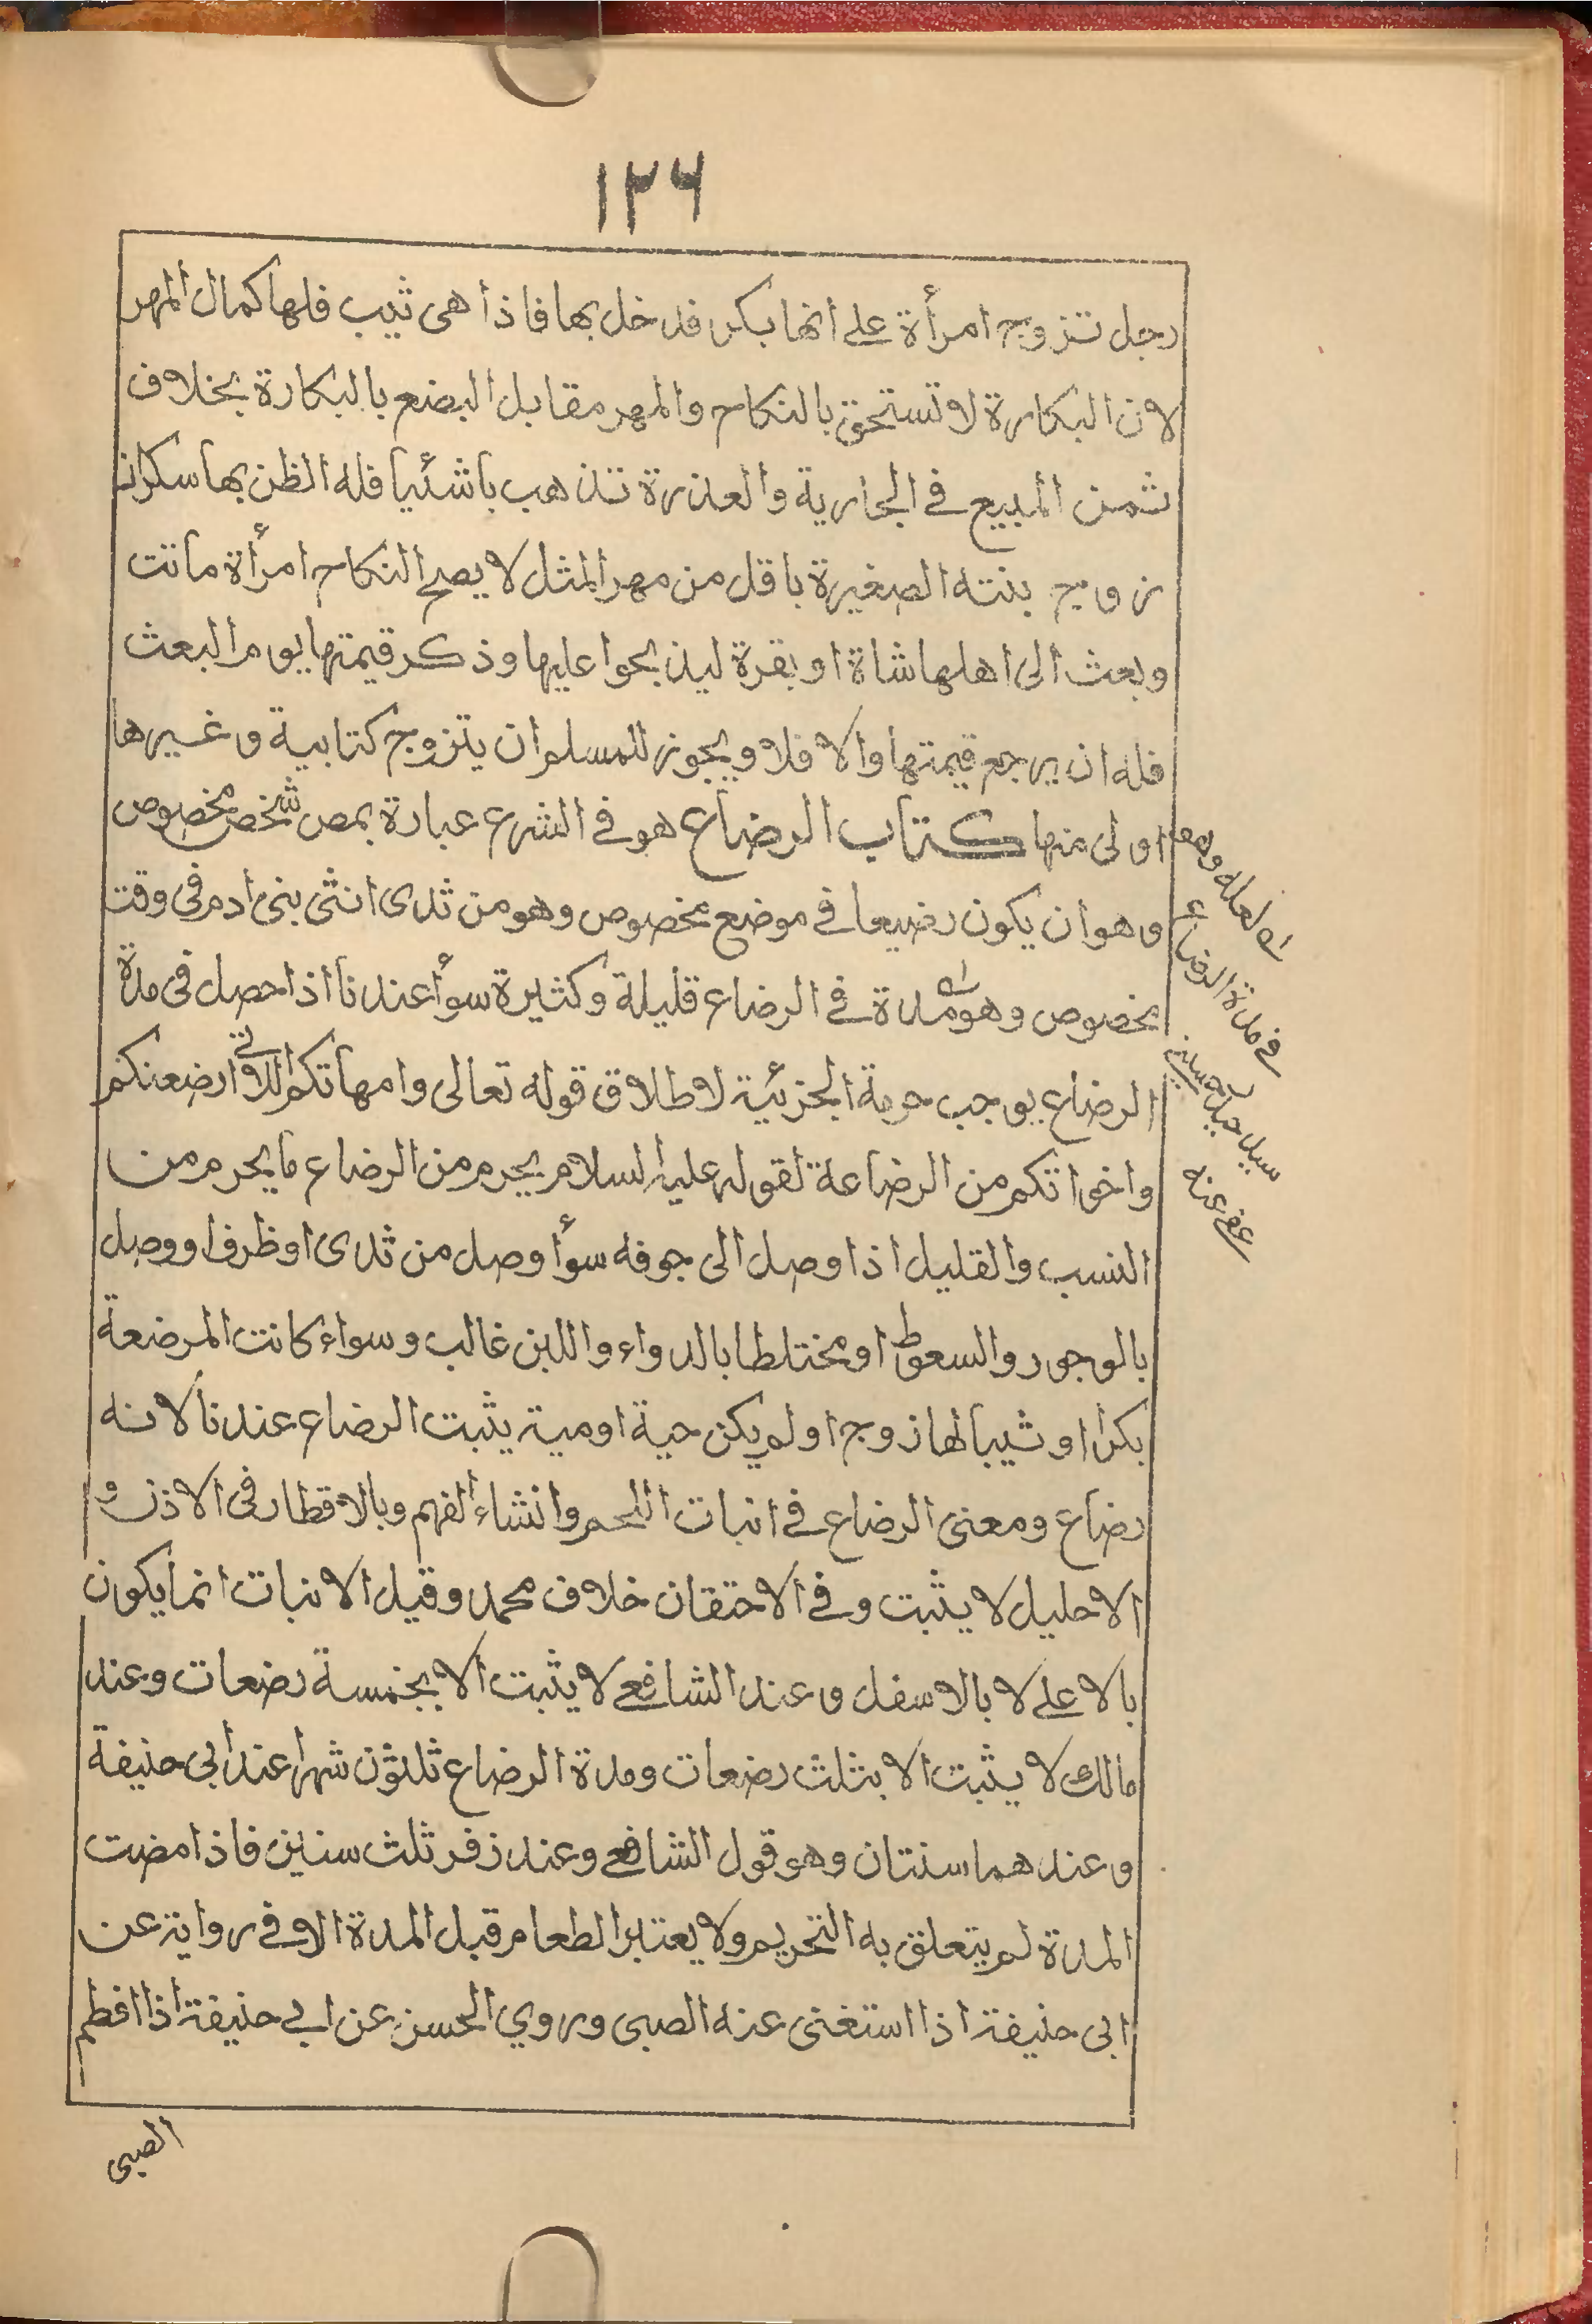 ١٢٦
رجل تزوج امرأة على انها بكر فدخل بها فاذا هى ثيب فلها كمال المهر
لان البكارة لا تستحق بالنكاح والمهر مقابل البضع بالبكارة بخلاف
ثمن المبيع في الجارية والعذرة تذهب باشئيا فله الظن بها سكران
زوج بنته الصغيرة باقل من مهر المثل لا يصح النكاح امرأة ماتت
وبعث الى اهلها شاة او بقرة ليذبحوا عليها وذكر قيمتها يوم البعث
فله ان يرجع قيمتها والا فلا ويجوز للمسلم ان يتزوج كتابية وغيرها
اولى منها كتاب الرضاع هو في الشرع عبارة بمص شخص مخصوص
وهو ان يكون رضيعا في موضع مخصوص وهو من ثدى انثى بنى ادم فى وقت
مخصوص وهو مدة في الرضاع قليلة وكثيرة سوأ عندنا اذا حصل فى مدة
الرضاع يوجب حرمة الجزئية لاطلاق قوله تعالى وامهاتكم اللاتي ارضعنكم
واخواتكم من الرضاعة لقوله عليه السلام يحرم من الرضاع ما يحرم من
النسب والقليل اذا وصل الى جوفه سوأ وصل من ثدى او ظرف او وصل
بالوجور والسعوط او مختلطا بالدواء واللبن غالب وسواء كانت المرضعة
بكرا او ثيبا لها زوج او لم يكن حية او ميتة يثبت الرضاع عندنا لانه
رضاع ومعنى الرضاع في انبات اللحم وانشاء الفهم وبالاقطار فى الاذن و
الاحليل لا يثبت وفي الاحتقان خلاف محمد وقيل الانبات انما يكون
بالاعلى لا بالاسفل وعند الشافعي لا يثبت الا بخمسة رضعات وعند
مالك لا يثبت الا بثلث رضعات ومدة الرضاع ثلثون شهرا عند ابى حنيفة
وعندهما سنتان وهو قول الشافعي وعند زفر ثلث سنين فاذا مضت
المدة لم يتعلق به التحريم ولا يعتبر الطعام قبل المدة الا وفي رواية عن
ابى حنيفة اذا استغنى عنه الصبى وروي الحسن عن ابي حنيفة اذا افطم
لعله وهو
في مدة الرضاع
سيد
عفى عنه
الصبى